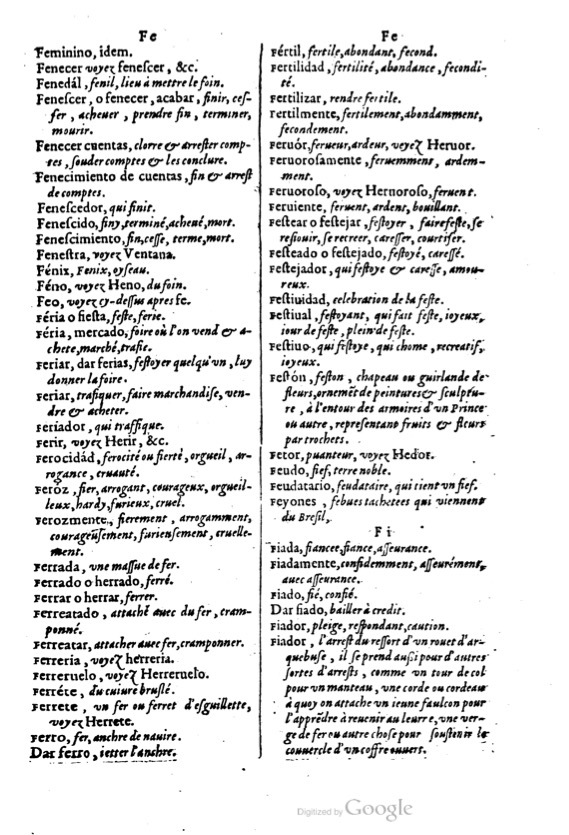 Fe
Feminino, idem.
Fenecer voyez fenescer, &c.
Fenedál, fenil, lieu à mettre le foin.
Fenescer, o fenecer, acabar, finir, ces-
ser, acheuer, prendre fin, terminer,
mourir.
Fenecer cuentas, clorre & arrester comp-
tes, souder comptes & les conclure.
Fenecimiento de cuentas, fin & arrest
de comptes.
Fenescedor, qui finit.
Fenescido, finy, terminé, acheué, mort.
Fenescimiento, fin, cesse, terme, mort.
Fenestra, voyez Ventana.
Fénix, Fenix, oyseau.
Féno, voyez Heno, du foin.
Feo, voyez cy-dessus apres fe.
Féria o fiesta, feste, ferie.
Féria, mercado, foire où l'on vend & a-
chete, marché, trafic.
Feriar, dar ferias, festoyer quelqu'vn, luy
donner la foire.
Feriar, trafiquer, faire marchandise, ven-
dre & acheter.
Feriador, qui traffique.
Ferir, voyez Herir, &c.
Ferocidád, ferocité ou fierté, orgueil, ar-
rogance, cruauté.
Feróz, fier, arrogant, courageux, orgueil-
leux, hardy, furieux, cruel.
Ferozmente, fierement, arrogamment,
courageusement, furieusement, cruelle-
ment.
Ferrada, vne massue de fer.
Ferrado o herrado, ferré.
Ferrar o herrar, ferrer.
Ferreatado, attaché auec du fer, cram-
ponné.
Ferreatar, attacher auec fer, cramponner.
Ferreria, voyez herreria.
Ferreruelo, voyez Herreruelo.
Ferréte, du cuiure bruslé.
Ferrete, vn fer ou ferret d'esguillette,
voyez Herrete.
Ferro, fer, anchre de nauire.
Dar ferro, ietter l'anchre.
Fe
Fértil, fertile, abondant, fecond.
Fertilidad, fertilité, abondance, fecondi-
té.
Fertilizar, rendre fertile.
Fertilmente, fertilement, abondamment,
fecondement.
Feruór, ferueur, ardeur, voyez Heruor.
Feruorosamente, feruemment, ardem-
ment.
Feruoroso, voyez Heruoroso, feruent.
Feruiente, feruent, ardent, bouillant.
Festear o festejar, festoyer, faire feste, se
resiouir, se recreer, caresser, courtiser.
Festeado o festejado, festoyé, caressé.
Festejador, qui festoye & caresse, amou-
reux.
Festiuidad, celebration de la feste.
Festiual, festoyant, qui fait feste, ioyeux,
iour de feste, plein de feste.
Festiuo, qui festoye, qui chome, recreatif,
ioyeux.
Festón, feston, chapeau ou guirlande de
fleurs, ornemẽt de peintures & sculptu-
re, à l'entour des armoires d'vn Prince
ou autre, representant fruits & fleurs
par trochets.
Fetor, puanteur, voyez Hedor.
Feudo, fief, terre noble.
Feudatario, feudataire, qui tient vn fief.
Feyones, febues tachetees qui viennent
du Bresil.
Fi
Fiada, fiancee, fiance, asseurance.
Fiadamente, confidemment, asseurément,
auec asseurance.
Fiado, fié, confié.
Dar fiado, bailler à credit.
Fiador, pleige, respondant, caution.
Fiador, l'arrest du ressort d'vn rouet d'ar-
quebuse, il se prend aussi pour d'autres
sortes d'arrests, comme vn tour de col
pour vn manteau, vne corde ou cordeau
à quoy on attache vn ieune faulcon pour
l'apprẽdre à reuenir au leurre, vne ver-
ge de fer ou autre chose pour soustenir le
couuercle d'vn coffre ouuert.
Digitized by Google